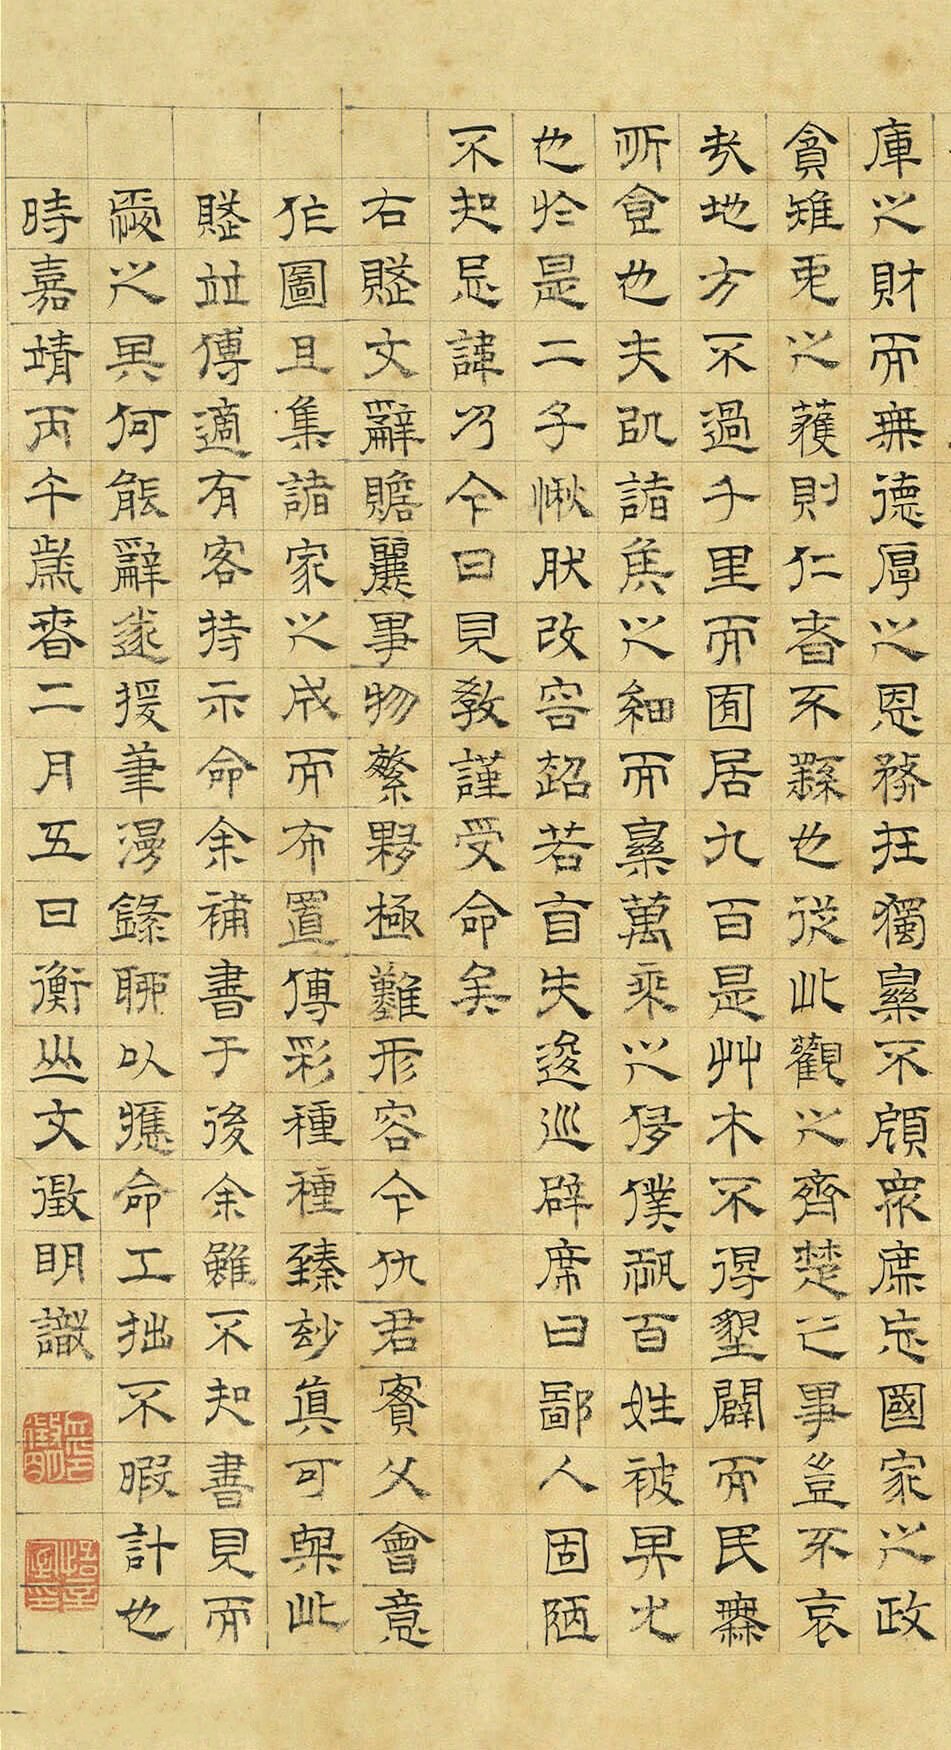 庫之財而無德厚之恩務在獨樂不顧眾庶忘國家之政
貪雉兔之獲則仁者不繇也從此觀之齊楚之事豈不哀
哉地方不過千里而囿居九百是艸木不得墾闢而民無
所食也夫以諸侯之細而樂萬乘之侈僕恐百姓被其尤
也於是二子愀然改容超若自失逡巡辟席曰鄙人固陋
不知忌諱乃今日見教謹受命矣
右賦文辭贍麗事物繁夥極難形容今仇君實父會意
作圖且集諸家之成而布置傅彩種種臻玅真可與此
賦竝傳適有客持示命余補書于後余雖不知書見而
愛之其何能辭遂援筆漫錄聊以應命工拙不暇計也
時嘉靖丙午歲春二月五日衡山文徵明識
文徵明印
悟言室印